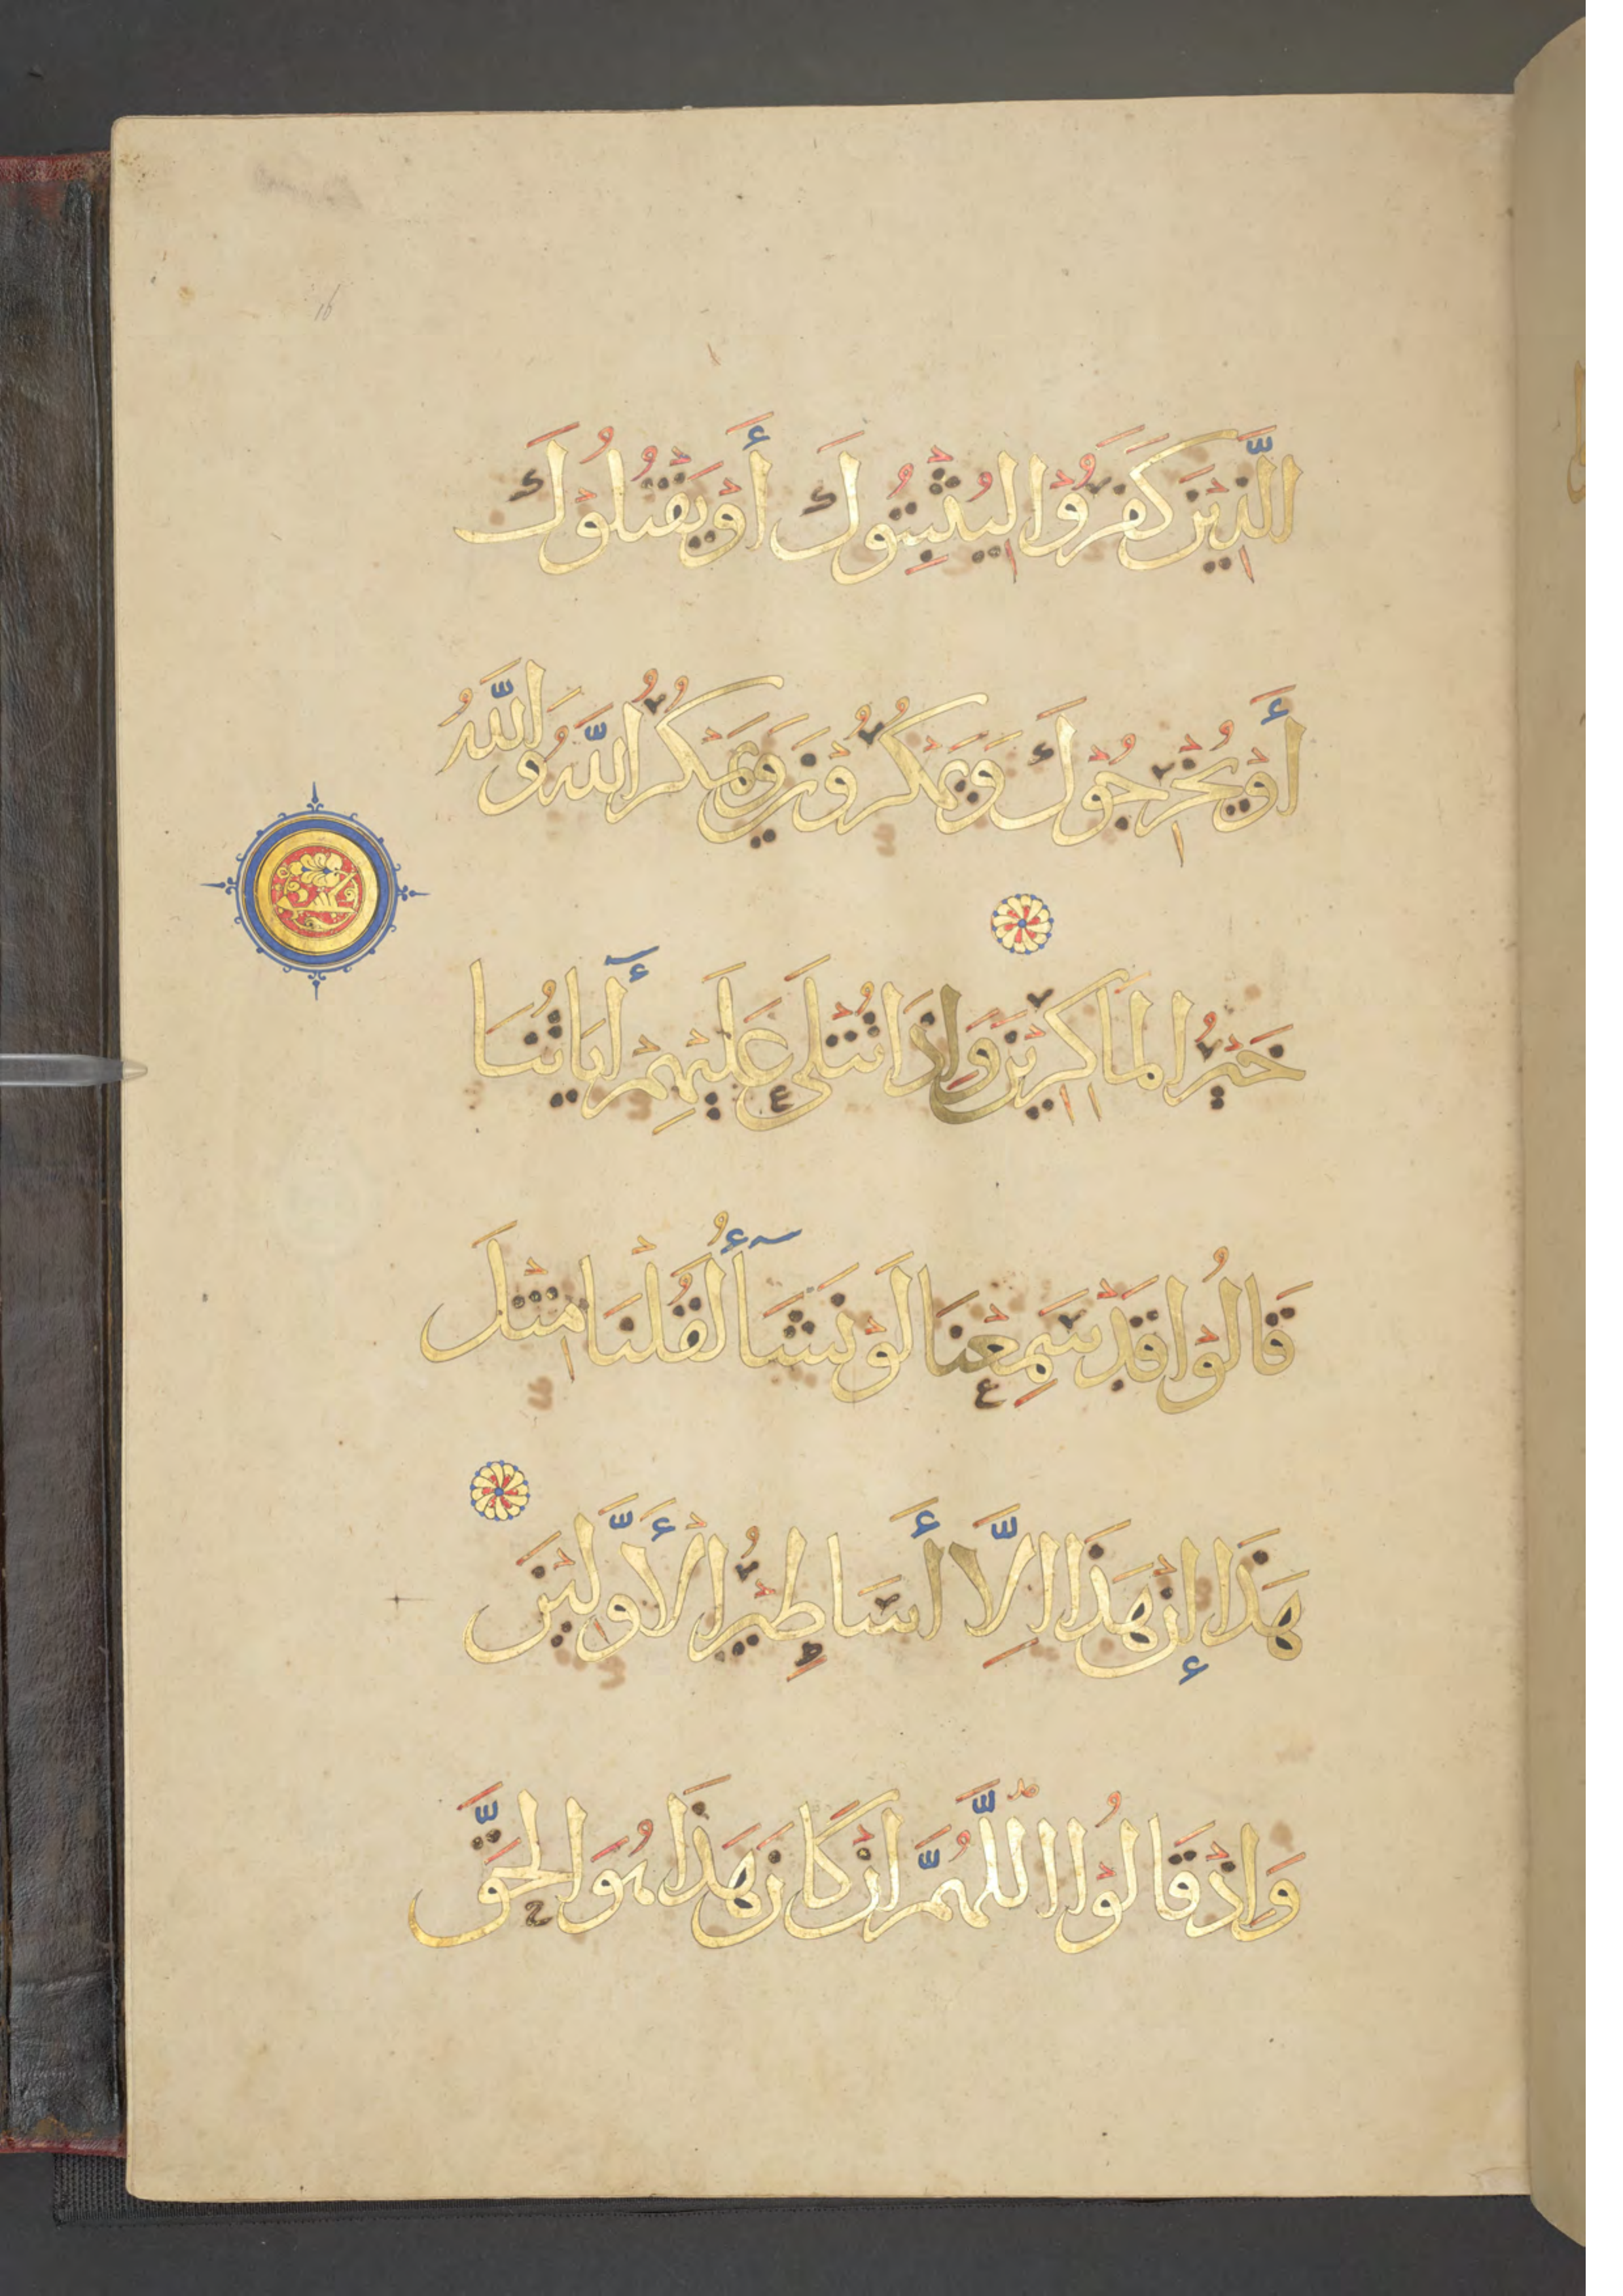 16
الَّذِيْنَ كَفَرُوْا لِيُثْبِتُوكَ أَوْ يَقْتُلُوْكَ
أَوْ يُخْرِجُوْكَ وَيَمْكُرُوْنَ وَيَمْكُرُ اللَّهُ وَاللَّهُ
خَيْرُ الْمَاكِرِيْنَ وَاِذَا تُتْلَى عَلَيْهِمْ أٓيَاتُنَا
قَالُوْا قَدْ سَمِعْنَا لَوْ نَشَآأُ لَقُلْنَا مِثْلَ
هَذَا إِنْ هَذَا اِلَّا أَسَاطِيْرُ الْأَوَّلِيْنَ
وَاِذْ قَالُوْا اللَّهُمَّ اِنْ كَانَ هَذَا هُوَ الْحَقَّ